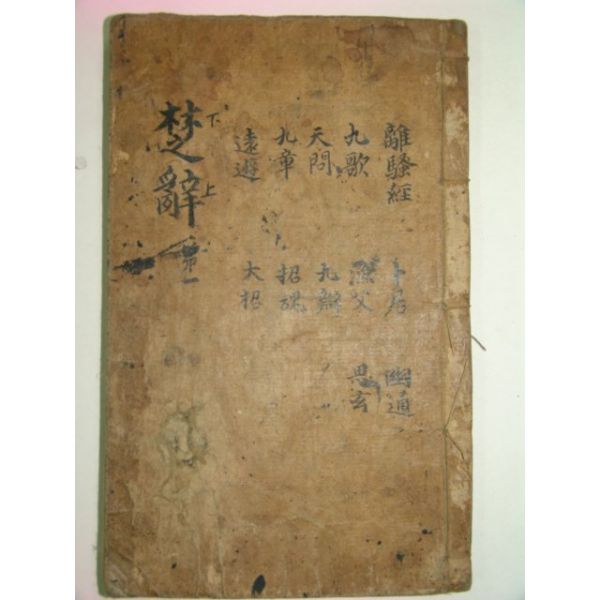 離騷經 卜居 幽通
九歌 漁父 思玄
天問 九辯
九章 招魂
遠遊 大招
下 上
楚辭